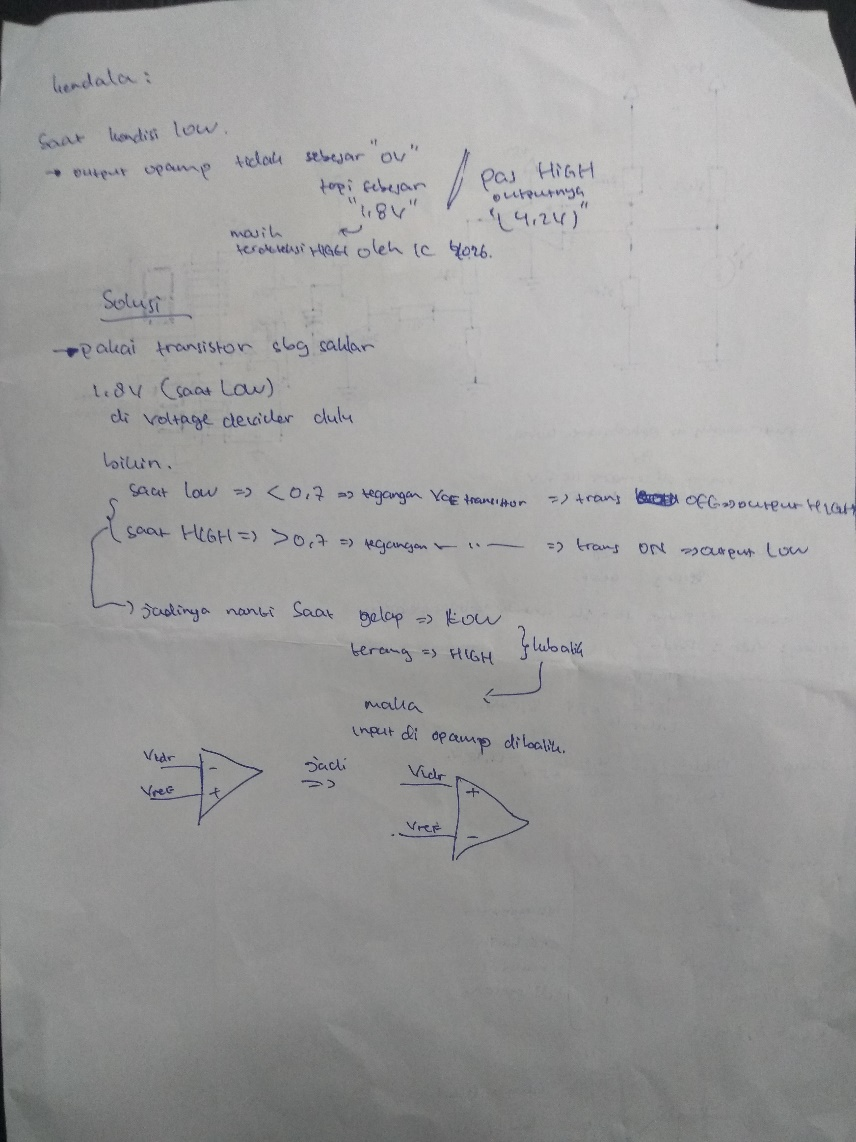 kendala :
Saat kondisi low.
→ output opamp tidak sebesar "0V"
tapi sebesar
"1,8V"
masih
terdeteksi HIGH oleh IC 4026.
pas HIGH
outputnya
"(4,2V)"
Solusi
→ pakai transistor sbg saklar
1.8V (saat Low)
di voltage devider dulu
bikin.
saat low => < 0,7 => tegangan VCE transistor => trans OFF => output HIGH
saat HIGH => > 0,7 => tegangan — " — => trans ON => output LOW
→ jadinya nanti saat gelap => LOW
terang => HIGH } kebalik
maka
input di opamp dibalik.
Vldr - jadi => Vldr +
Vref + Vref -